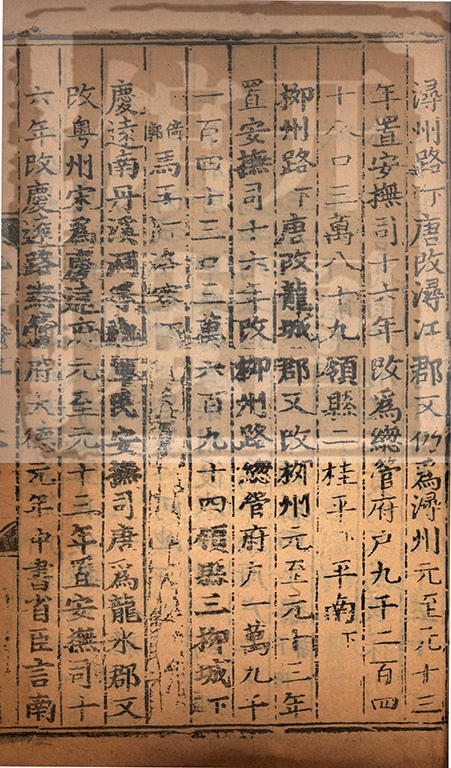 潯州路下唐改潯江郡又仍爲潯州元至元十三
年置安撫司十六年改爲總管府戶九千二百四
十八口三萬八十九領縣二桂平下平南下
柳州路下唐改龍城郡又改柳州元至元十二年
置安撫司十六年改柳州路總管府戶一萬九千
一百四十三口三萬六百九十四領縣三柳城下
倚郭馬平下洛容下
慶遠南丹溪洞等處軍民安撫司唐爲龍水郡又
改粵州宋爲慶遠府元至元十三年置安撫司十
六年改慶遠路總管府大德元年中書省臣言南